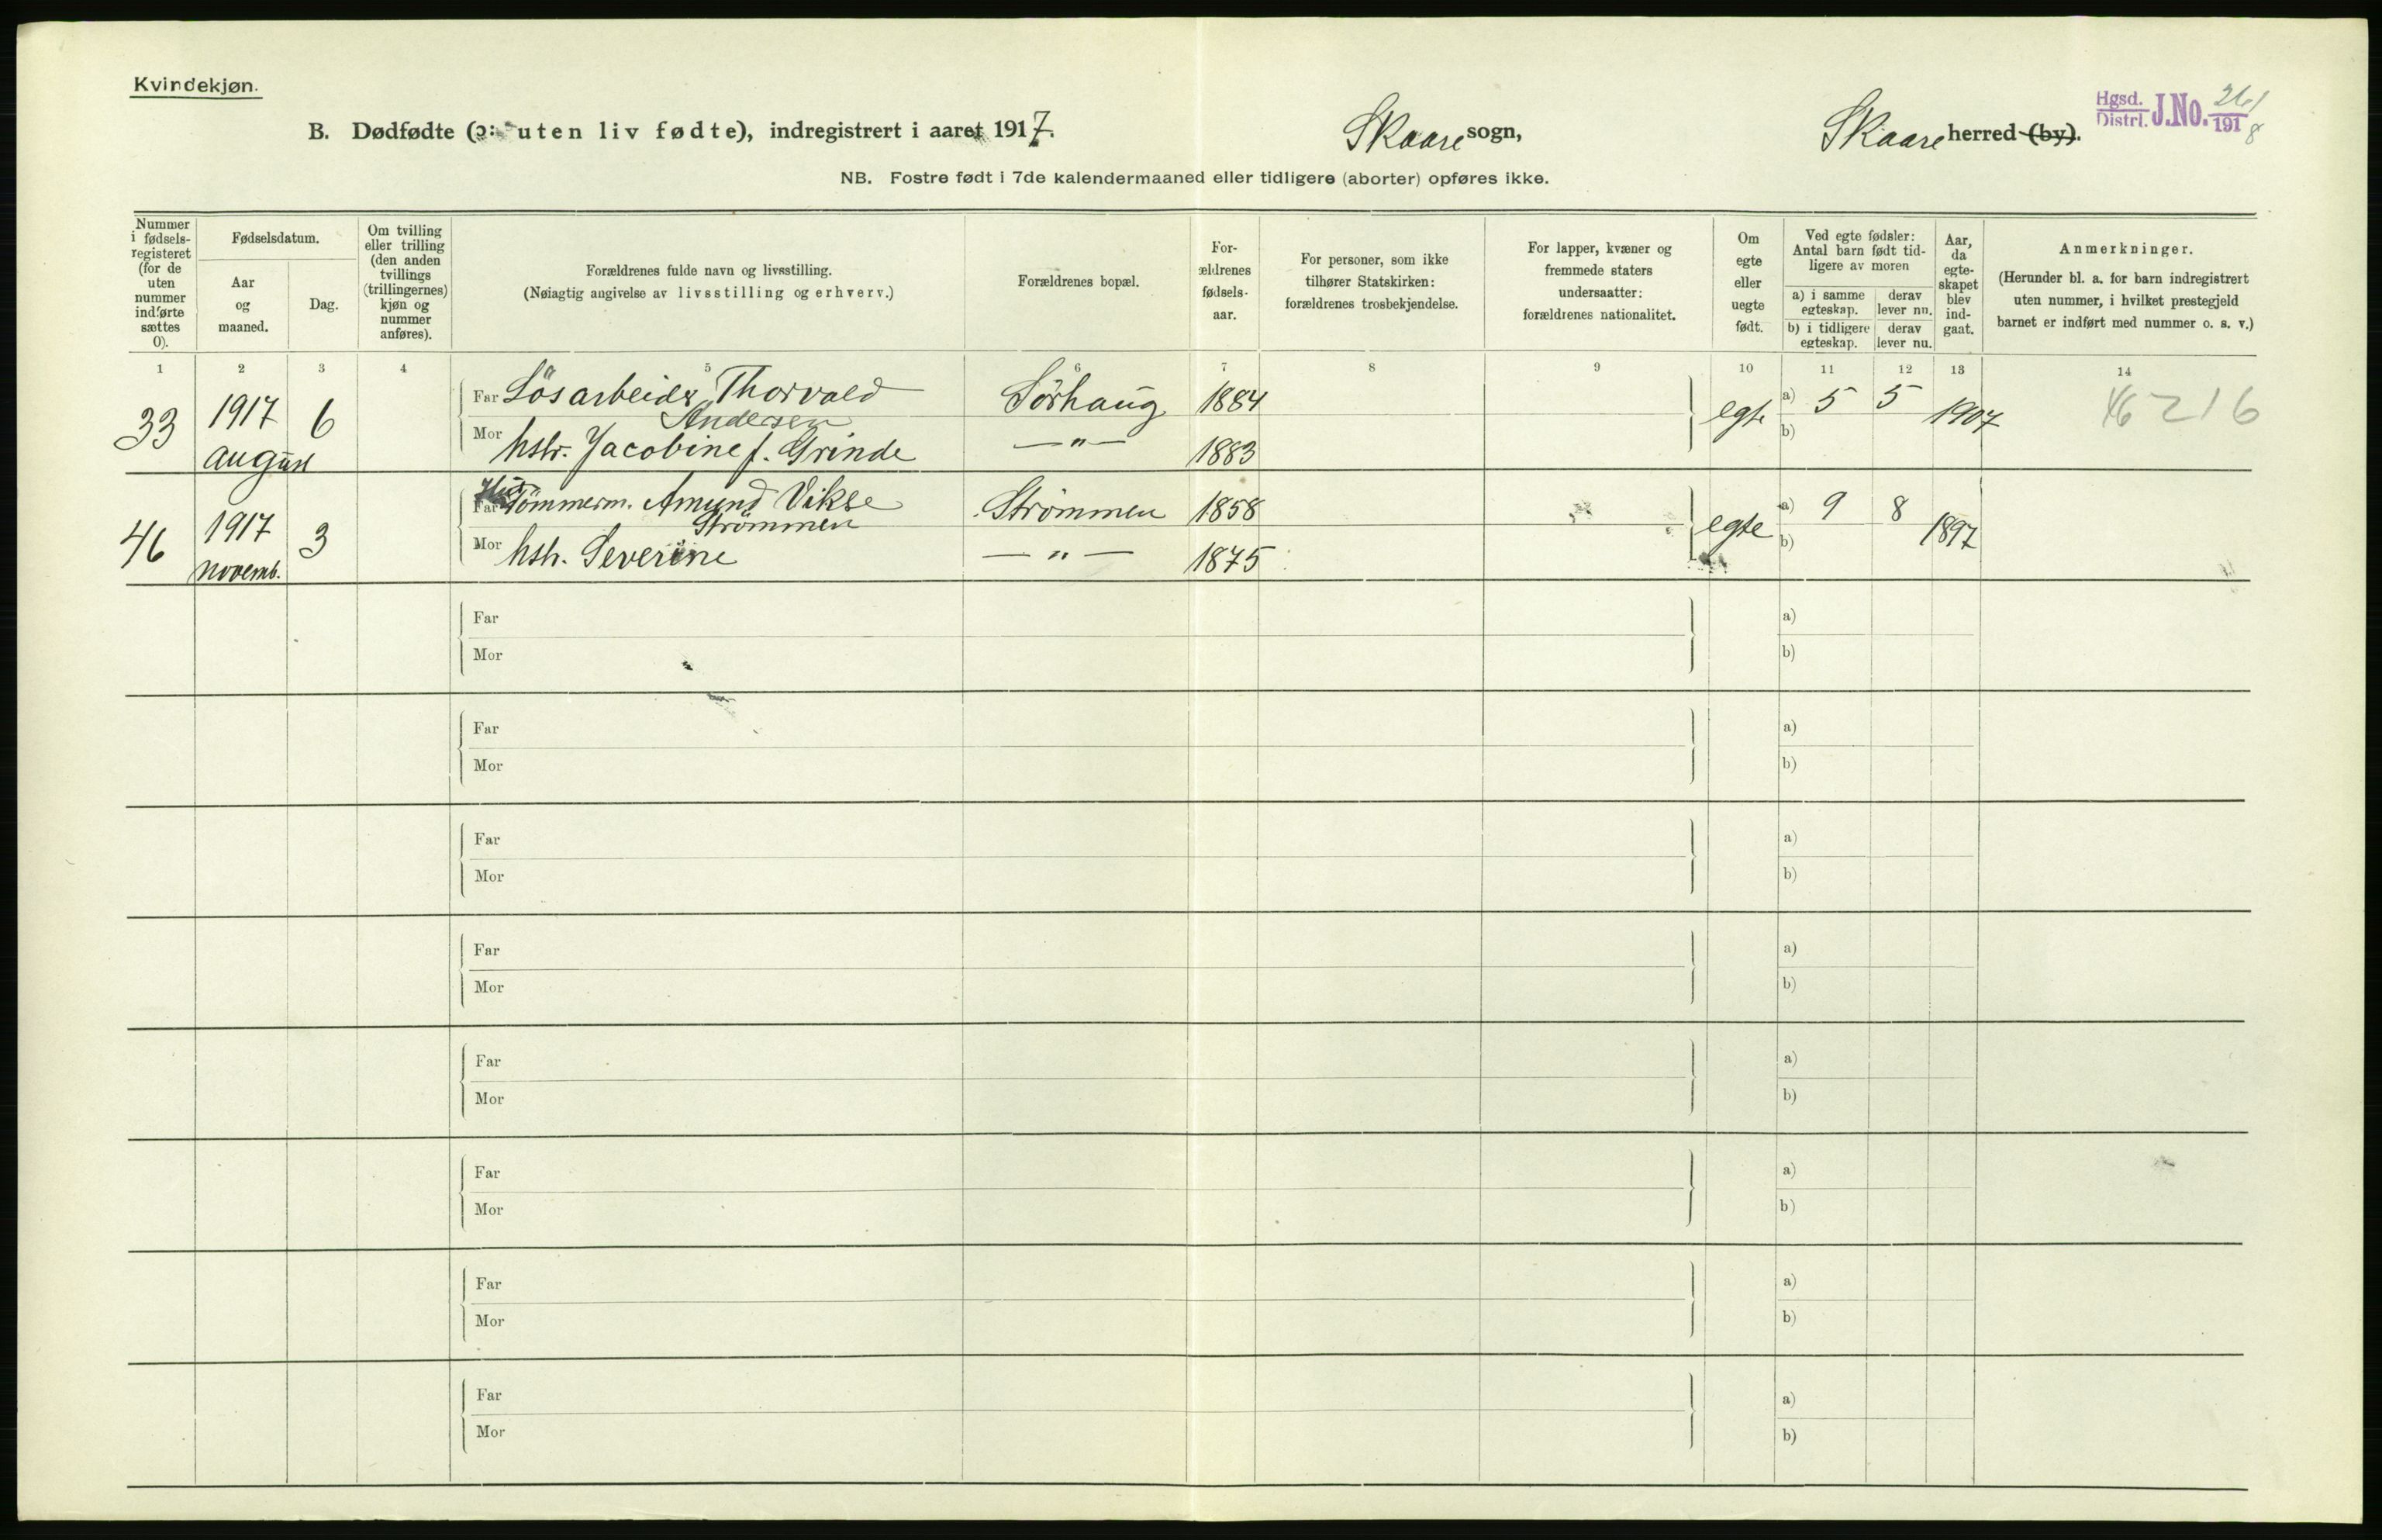 Kvindekjøn.
B. Dødfødte (ɔ: uten liv fødte), indregistrert i aaret 1917. Skaare sogn, Skaare herred (by).
Hgsd. Distri. J.No. 261/1918
NB. Fostre født i 7de kalendermaaned eller tidligere (aborter) opføres ikke.
Nummer i fødsels-registeret (for de uten nummer indførte sættes 0).
Fødselsdatum.
Aar og maaned.
Dag.
Om tvilling eller trilling (den anden tvillings (trillingernes) kjøn og nummer anføres).
Forældrenes fulde navn og livsstilling.
(Nøiagtig angivelse av livsstilling og erhverv.)
Forældrenes bopæl.
For-ældrenes fødsels-aar.
For personer, som ikke tilhører Statskirken: forældrenes trosbekjendelse.
For lapper, kvæner og fremmede staters undersaatter: forældrenes nationalitet.
Om egte eller uegte født.
Ved egte fødsler: Antal barn født tid-ligere av moren
a) i samme egteskap. derav lever nu.
b) i tidligere egteskap. derav lever nu.
Aar, da egte-skapet blev ind-gaat.
Anmerkninger.
(Herunder bl. a. for barn indregistrert uten nummer, i hvilket prestegjeld barnet er indført med nummer o. s. v.)
1 2 3 4 5 6 7 8 9 10 11 12 13 14
33 1917 august 6 Far Lösarbeider Thorvald Andersen Sörhaug 1884 egte a) 5 5 1907 216
Mor hstr. Jacobine f. Grinde — " — 1883 b)
46 1917 novemb. 3 Far Tömmerm. Amund Vikse Strömmen Strömmen 1858 egte a) 9 8 1897
Mor hstr. Severine — " — 1875 b)
Far a)
Mor b)
Far a)
Mor b)
Far a)
Mor b)
Far a)
Mor b)
Far a)
Mor b)
Far a)
Mor b)
Far a)
Mor b)
Far a)
Mor b)